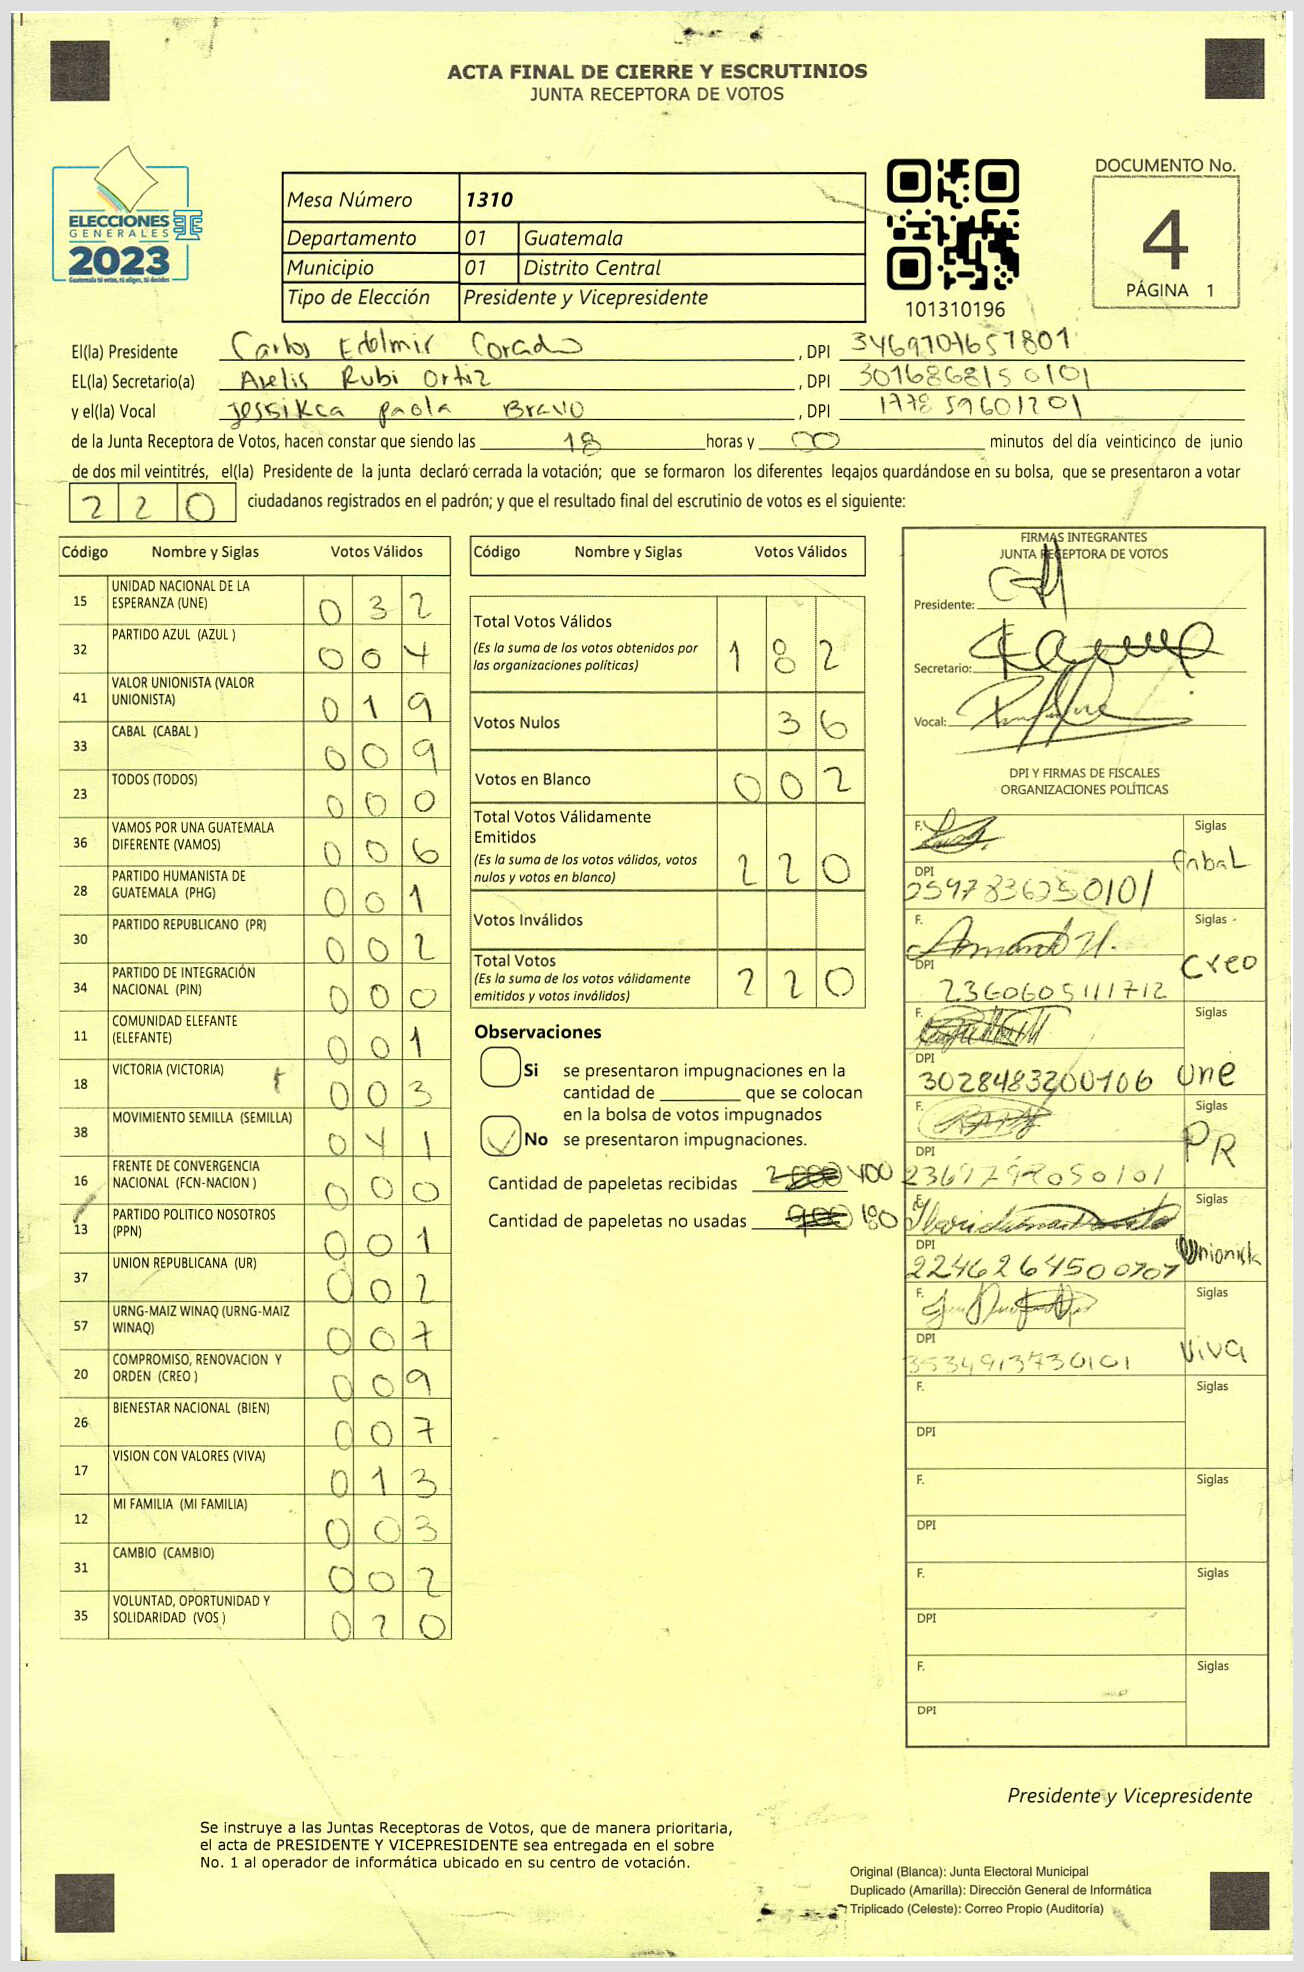 ACTA FINAL DE CIERRE Y ESCRUTINIOS
JUNTA RECEPTORA DE VOTOS
ELECCIONES
GENERALES
2023
Guatemala tú votas, tú eliges, tú decides
Mesa Número 1310
Departamento 01 Guatemala
Municipio 01 Distrito Central
Tipo de Elección Presidente y Vicepresidente
101310196
DOCUMENTO No.
4
PÁGINA 1
El(la) Presidente Carlos Edelmir Corado, DPI
EL(la) Secretario(a) Axelis Rubi Ortiz, DPI 3016868150101
y el(la) Vocal Jessikca paola Bravo, DPI 1778596011201
de la Junta Receptora de Votos, hacen constar que siendo las 18 horas y 00 minutos del día veinticinco de junio
de dos mil veintitrés, el(la) Presidente de la junta declaró cerrada la votación; que se formaron los diferentes legajos quardándose en su bolsa, que se presentaron a votar
220 ciudadanos registrados en el padrón; y que el resultado final del escrutinio de votos es el siguiente:
Código Nombre y Siglas Votos Válidos
15 UNIDAD NACIONAL DE LA ESPERANZA (UNE) 032
32 PARTIDO AZUL (AZUL ) 004
41 VALOR UNIONISTA (VALOR UNIONISTA) 019
33 CABAL (CABAL ) 009
23 TODOS (TODOS) 000
36 VAMOS POR UNA GUATEMALA DIFERENTE (VAMOS) 006
28 PARTIDO HUMANISTA DE GUATEMALA (PHG) 001
30 PARTIDO REPUBLICANO (PR) 002
34 PARTIDO DE INTEGRACIÓN NACIONAL (PIN) 000
11 COMUNIDAD ELEFANTE (ELEFANTE) 001
18 VICTORIA (VICTORIA) 003
38 MOVIMIENTO SEMILLA (SEMILLA) 041
16 FRENTE DE CONVERGENCIA NACIONAL (FCN-NACION ) 000
13 PARTIDO POLITICO NOSOTROS (PPN) 001
37 UNION REPUBLICANA (UR) 002
57 URNG-MAIZ WINAQ (URNG-MAIZ WINAQ) 007
20 COMPROMISO, RENOVACION Y ORDEN (CREO ) 009
26 BIENESTAR NACIONAL (BIEN) 007
17 VISION CON VALORES (VIVA) 013
12 MI FAMILIA (MI FAMILIA) 003
31 CAMBIO (CAMBIO) 002
35 VOLUNTAD, OPORTUNIDAD Y SOLIDARIDAD (VOS ) 020
Código Nombre y Siglas Votos Válidos
Total Votos Válidos 182
(Es la suma de los votos obtenidos por
las organizaciones políticas)
Votos Nulos 36
Votos en Blanco 002
Total Votos Válidamente
Emitidos 220
(Es la suma de los votos válidos, votos
nulos y votos en blanco)
Votos Inválidos
Total Votos 220
(Es la suma de los votos válidamente
emitidos y votos inválidos)
Observaciones
Si se presentaron impugnaciones en la
cantidad de ________ que se colocan
en la bolsa de votos impugnados
No se presentaron impugnaciones.
Cantidad de papeletas recibidas 400
Cantidad de papeletas no usadas 180
FIRMAS INTEGRANTES
JUNTA RECEPTORA DE VOTOS
Presidente:
Secretario:
Vocal:
DPI Y FIRMAS DE FISCALES
ORGANIZACIONES POLÍTICAS
F. Siglas
DPI 2597836250101 CabaL
F. Siglas
DPI 2360605111712 Creo
F. Siglas
DPI 3028483200106 une
F. Siglas
DPI PR
F. Siglas
DPI 2246264500707 Unionista
F. Siglas
DPI 3534913730101 ViVa
F. Siglas
DPI
F. Siglas
DPI
F. Siglas
DPI
F. Siglas
DPI
Presidente y Vicepresidente
Se instruye a las Juntas Receptoras de Votos, que de manera prioritaria,
el acta de PRESIDENTE Y VICEPRESIDENTE sea entregada en el sobre
No. 1 al operador de informática ubicado en su centro de votación.
Original (Blanca): Junta Electoral Municipal
Duplicado (Amarilla): Dirección General de Informática
Triplicado (Celeste): Correo Propio (Auditoría)